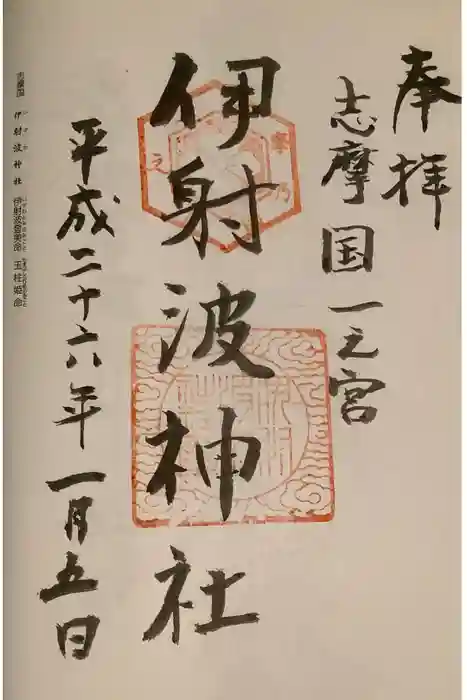 奉拝
志摩国一之宮
伊射波神社
平成二十六年一月五日
志摩国 伊射波神社 伊射波登美命 玉柱姫命